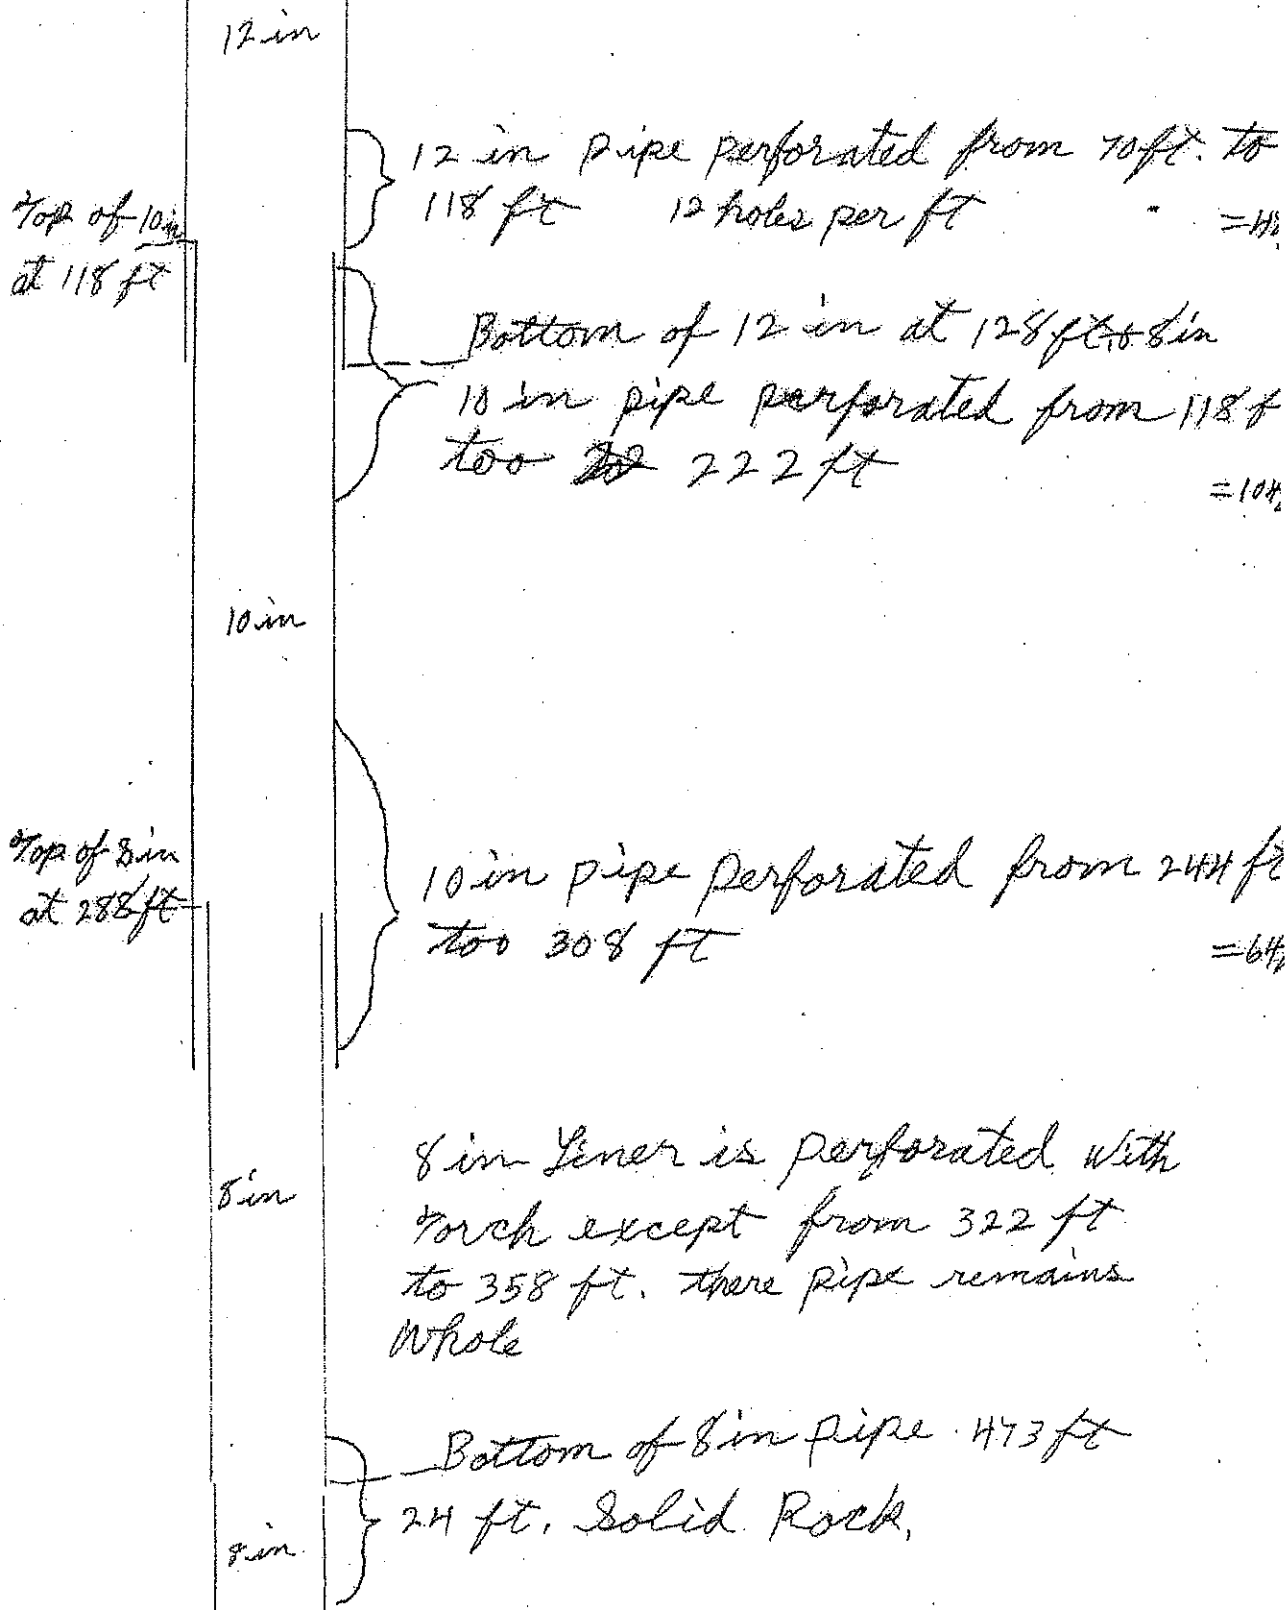 12 in
12 in pipe perforated from 70 ft. to
118 ft 12 holes per ft
Top of 10 in
at 118 ft
Bottom of 12 in at 128 ft 8 in
10 in pipe perforated from 118 f
too 222 ft
=104
10 in
Top of 8 in
at 288 ft
10 in pipe perforated from 244 ft
too 308 ft
=64
8 in
8 in Liner is perforated with
Torch except from 322 ft
to 358 ft. there pipe remains
Whole
Bottom of 8 in pipe 473 ft
24 ft. Solid Rock,
8 in